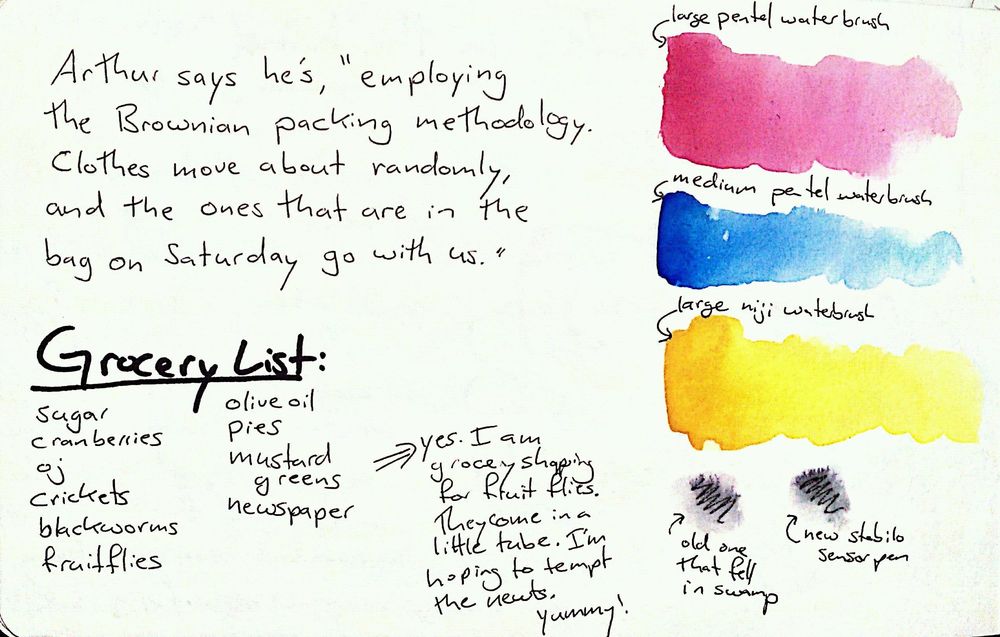 Arthur says he's, "employing
the Brownian packing methodology.
Clothes move about randomly,
and the ones that are in the
bag on Saturday go with us."
Grocery List:
sugar
cranberries
oj
crickets
blackworms
fruitflies
olive oil
pies
mustard
greens
newspaper
yes. I am
grocey shopping
for fruit flies.
They come in a
little tube. I'm
hoping to tempt
the newts.
yummy!
large pentel waterbrush
medium pentel waterbrush
large niji waterbrush
old one
that fell
in swamp
new stabilo
sensor pen